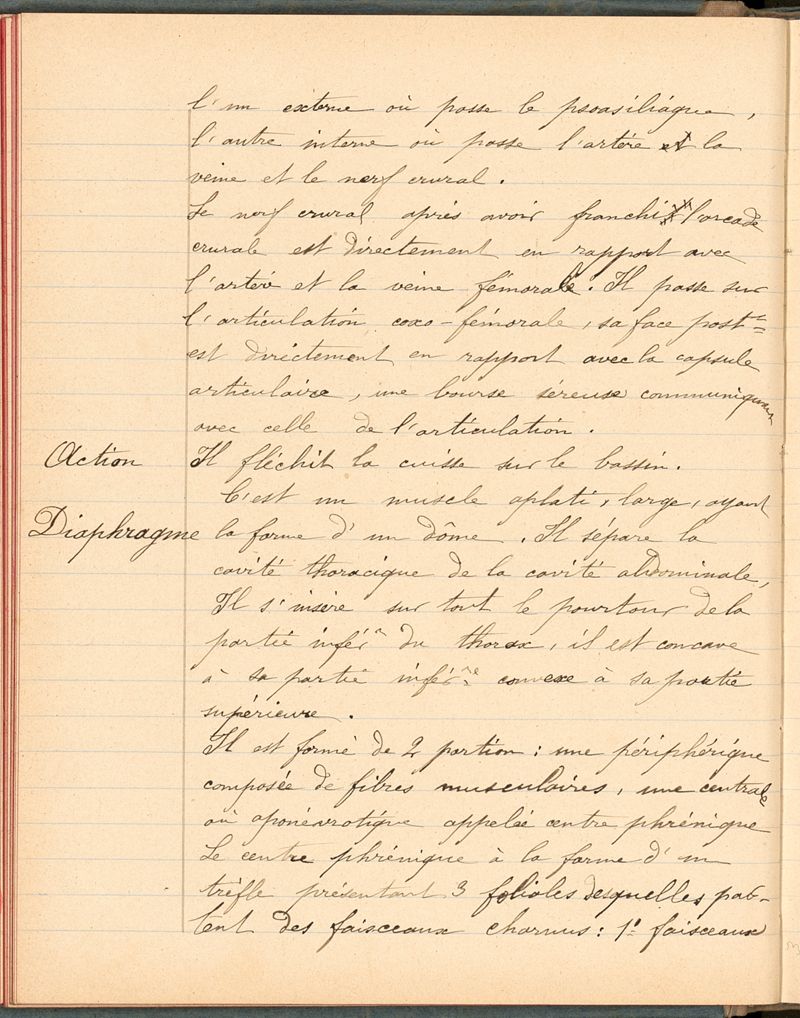 l'un externe où passe le psoasiliaque,
l'autre interne où passe l'artère et la
veine et le nerf crural.
Le nerf crural après avoir franchi l'arcade
crurale est directement en rapport avec
l'artère et la veine fémorale. Il passe sur
l'articulation coxo-fémorale, sa face postre
est directement en rapport avec la capsule
articulaire, une bourse séreuse communiquant
avec celle de l'articulation.
Action Il fléchit la cuisse sur le bassin.
C'est un muscle aplati, large, ayant
Diaphragme la forme d'un dôme. Il sépare la
cavité thoracique de la cavité abdominale,
Il s'insère sur tout le pourtour de la
partie inférre du thorax, il est concave
à sa partie inférre convexe à sa partie
supérieure.
Il est formé de 2 portion : une périphérique
composée de fibres musculaires, une centrale
ou aponévrotique appelée centre phrénique
Le centre phrénique à la forme d'un
trèfle présentant 3 folioles desquelles par-
tent des faisceaux charnus : 1º faisceaux